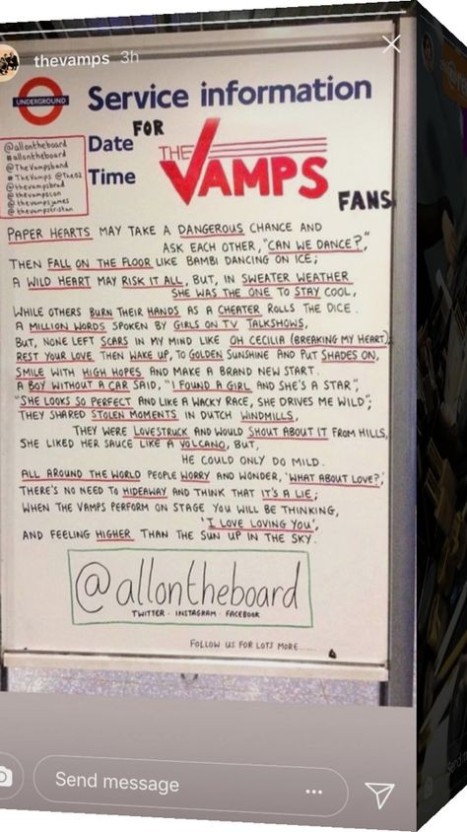 thevamps 3h
UNDERGROUND
Service information
FOR
Date
Time
THE
VAMPS
FANS
@allontheboard
#allontheboard
@TheVampsband
@thevampsbrad
@thevampscon
@thevampsjames
@thevampstristan
PAPER HEARTS MAY TAKE A DANGEROUS CHANCE AND
ASK EACH OTHER, "CAN WE DANCE?",
THEN FALL ON THE FLOOR LIKE BAMBI DANCING ON ICE;
A WILD HEART MAY RISK IT ALL, BUT, IN SWEATER WEATHER
SHE WAS THE ONE TO STAY COOL,
WHILE OTHERS BURN THEIR HANDS AS A CHEATER ROLLS THE DICE.
A MILLION WORDS SPOKEN BY GIRLS ON TV TALKSHOWS,
BUT, NONE LEFT SCARS IN MY MIND LIKE OH CECILIA (BREAKING MY HEART)
REST YOUR LOVE THEN WAKE UP, TO GOLDEN SUNSHINE AND PUT SHADES ON,
SMILE WITH HIGH HOPES AND MAKE A BRAND NEW START.
A BOY WITHOUT A CAR SAID, "I FOUND A GIRL AND SHE'S A STAR",
"SHE LOOKS SO PERFECT AND LIKE A WACKY RACE, SHE DRIVES ME WILD";
THEY SHARED STOLEN MOMENTS IN DUTCH WINDMILLS,
THEY WERE LOVESTRUCK AND WOULD SHOUT ABOUT IT FROM HILLS,
SHE LIKED HER SAUCE LIKE A VOLCANO, BUT,
HE COULD ONLY DO MILD.
ALL AROUND THE WORLD PEOPLE WORRY AND WONDER, 'WHAT ABOUT LOVE?',
THERE'S NO NEED TO HIDEAWAY AND THINK THAT IT'S A LIE;
WHEN THE VAMPS PERFORM ON STAGE YOU WILL BE THINKING,
'I LOVE LOVING YOU',
AND FEELING HIGHER THAN THE SUN UP IN THE SKY.
@allontheboard
TWITTER · INSTAGRAM · FACEBOOK
FOLLOW US FOR LOTS MORE...
Send message